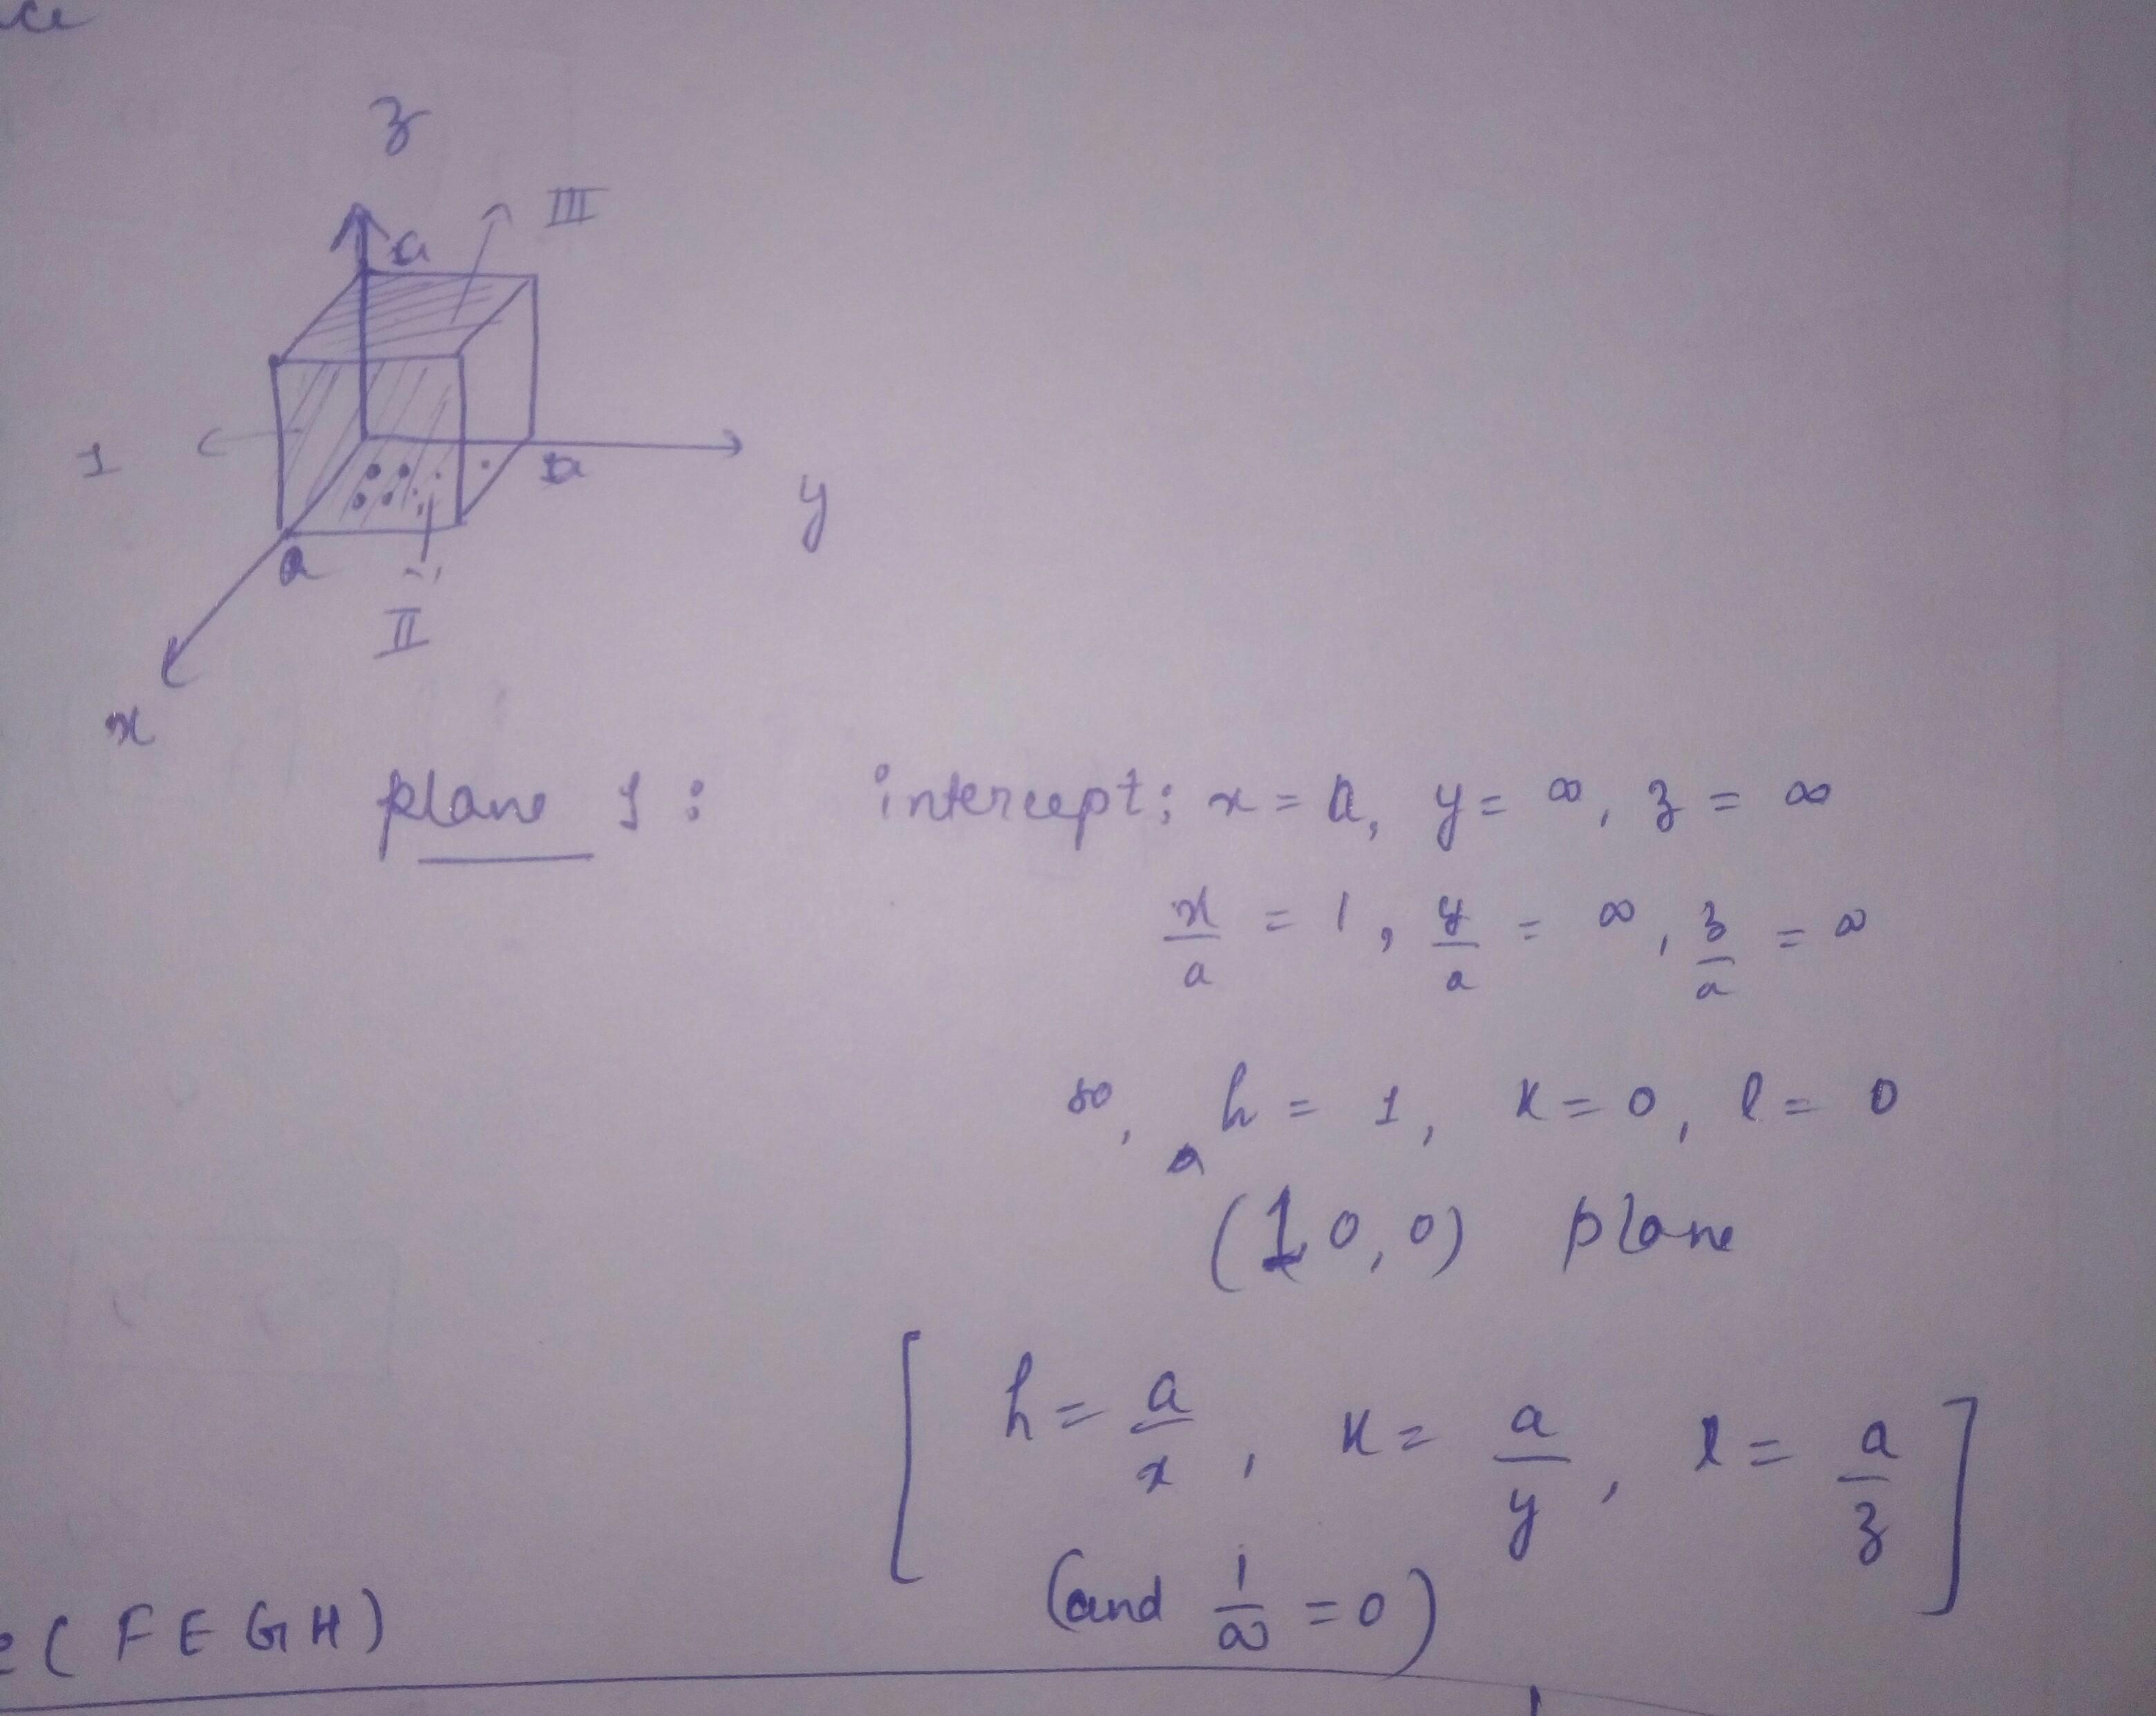 ce
z
III
a
1
a
y
a
II
x
plane 1: intercept; x = a, y = ∞, z = ∞
x/a = 1, y/a = ∞, z/a = ∞
so, h = 1, k = 0, l = 0
(1, 0, 0) plane
[ h = a/x, k = a/y, l = a/z ]
(and 1/∞ = 0)
e ( F E G H )